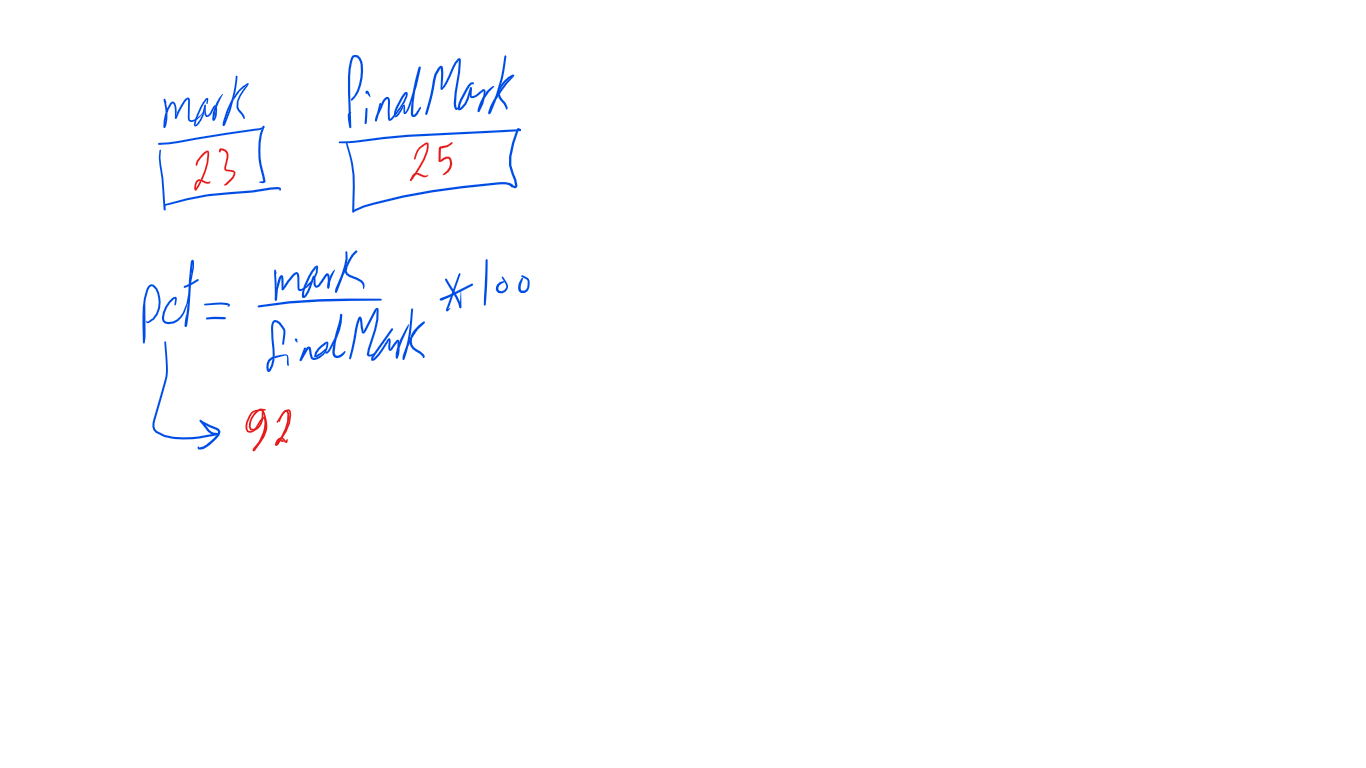 mark finalMark
23 25
pct = mark / finalMark * 100
92